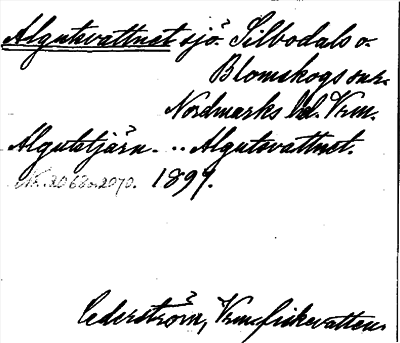 Algutsvattnet sjö. Silbodals o.
Blomskogs snr.
Nordmarks hd. Vrm.
Algutstjärn. .. Algutsvattnet.
Nr. 2068o.2070. 1897.
Cederström, Vrm. fiskevatten.